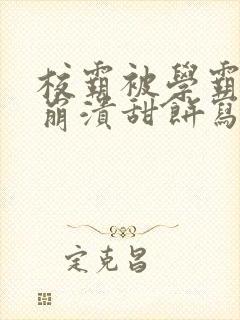 校霸被學霸
崩潰甜餅寫
定克昌